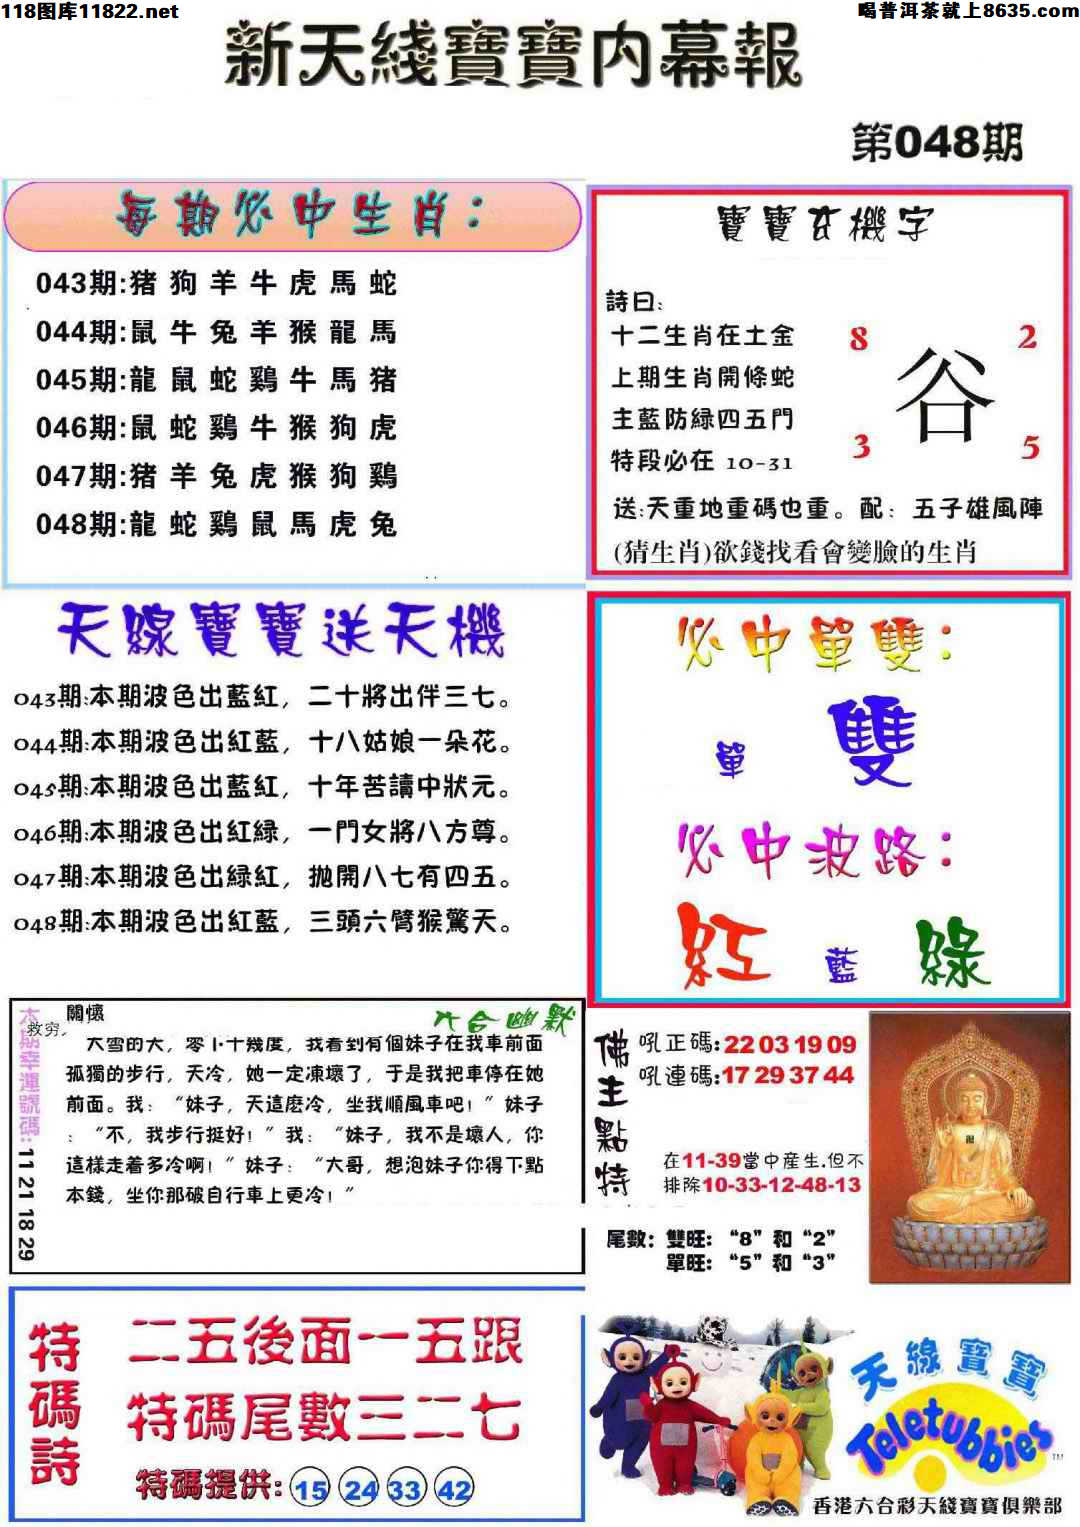 118图库11822.net
喝普洱茶就上8635.com
新天綫寶寶内幕報
第048期
每期必中生肖：
043期:猪狗羊牛虎馬蛇
044期:鼠牛兔羊猴龍馬
045期:龍鼠蛇鷄牛馬猪
046期:鼠蛇鷄牛猴狗虎
047期:猪羊兔虎猴狗鷄
048期:龍蛇鷄鼠馬虎兔
寶寶玄機字
詩曰:
十二生肖在土金
上期生肖開條蛇
主藍防緑四五門
特段必在 10-31
8 2
谷
3 5
送:天重地重碼也重。配：五子雄風陣
(猜生肖)欲錢找看會變臉的生肖
天線寶寶送天機
043期:本期波色出藍紅，二十將出伴三七。
044期:本期波色出紅藍，十八姑娘一朵花。
045期:本期波色出藍紅，十年苦讀中狀元。
046期:本期波色出紅緑，一門女將八方尊。
047期:本期波色出緑紅，拋開八七有四五。
048期:本期波色出紅藍，三頭六臂猴驚天。
必中單雙：
單 雙
必中波路：
紅 藍 綠
本期幸運號碼:11 21 18 29
六合幽默
關懷
救穷。
大雪的天，零下十幾度，我看到有個妹子在我車前面
孤獨的步行，天冷，她一定凍壞了，于是我把車停在她
前面。我：“妹子，天這麽冷，坐我順風車吧！”妹子
：“不，我步行挺好！”我：“妹子，我不是壞人，你
這樣走着多冷啊！”妹子：“大哥，想泡妹子你得下點
本錢，坐你那破自行車上更冷！”
佛主點特
吼正碼:22 03 19 09
吼連碼:17 29 37 44
在11-39當中産生.但不
排除10-33-12-48-13
尾數：雙旺：“8”和“2”
單旺：“5”和“3”
特碼詩
二五後面一五跟
特碼尾數三二七
特碼提供: 15 24 33 42
天線寶寶
Teletubbies
TM
香港六合彩天綫寶寶俱樂部